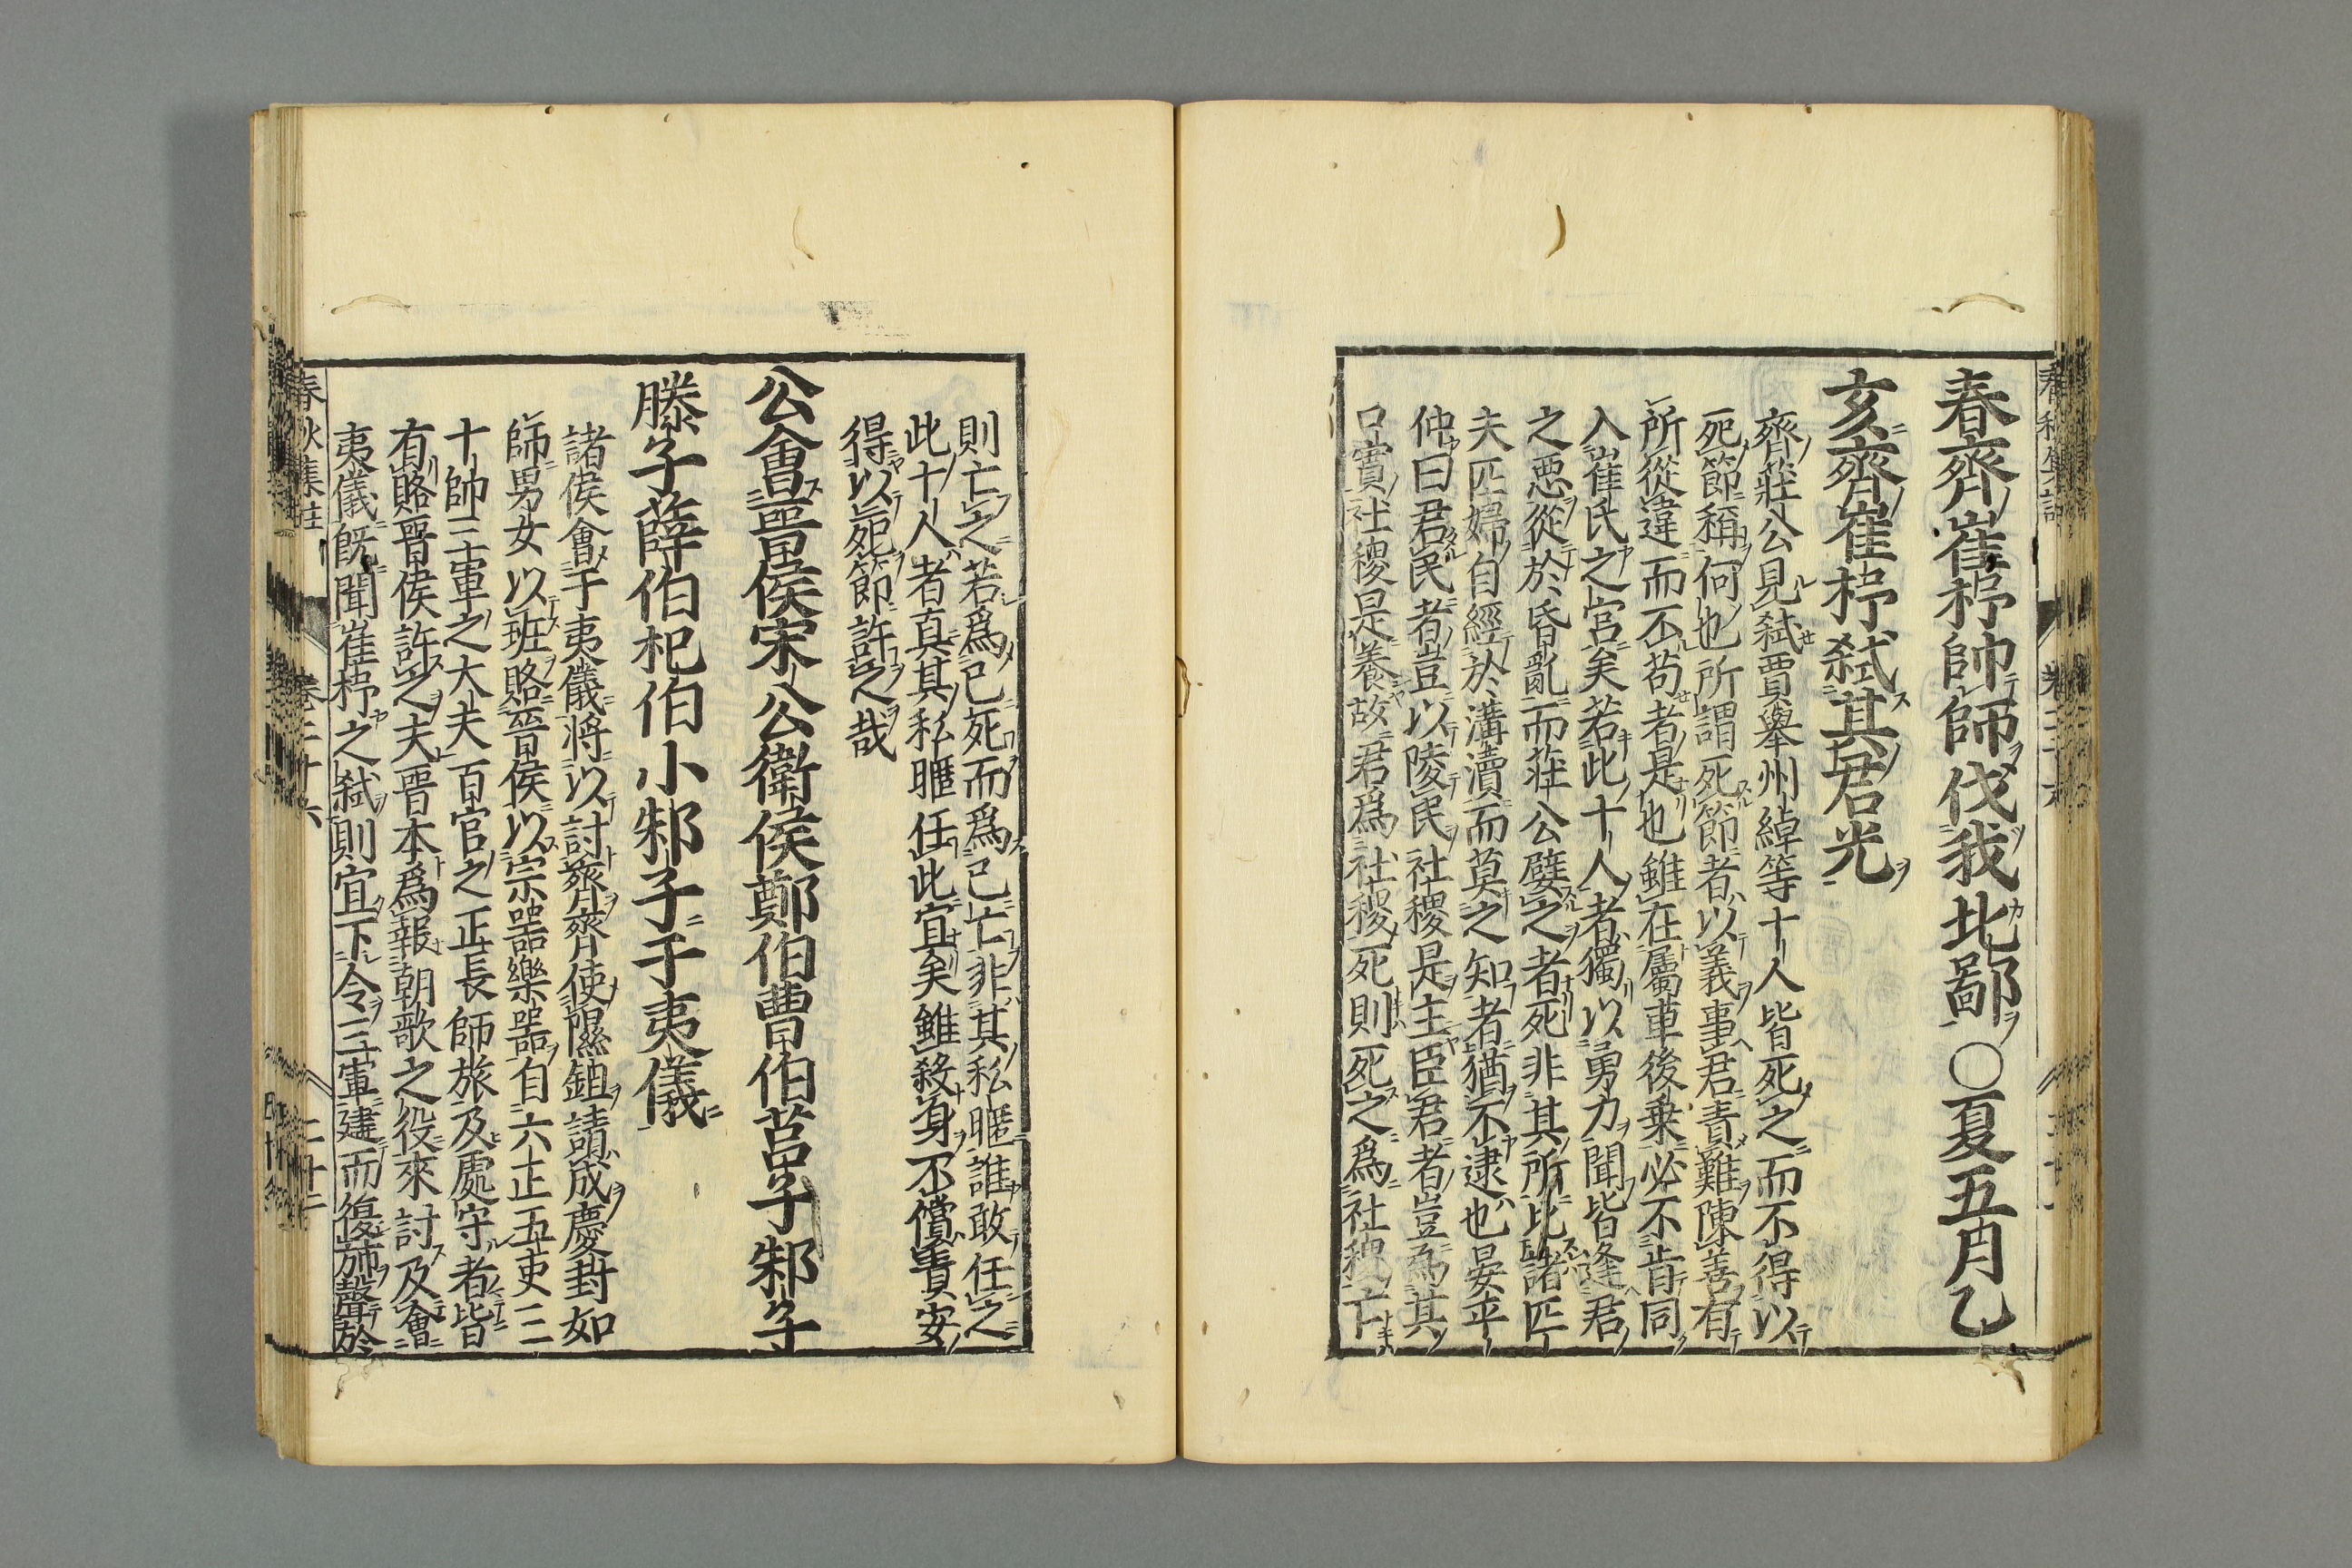 春齊崔杼帥師伐我北鄙○夏五月乙
亥齊崔杼弑其君光
齊莊公見弑賈舉州綽等十人皆死之而不得以
死節稱何也所謂死節者以義事君責難陳善有
所從違而不苟者是也雖在屬車後乗必不肯同
入崔氏之宮矣若此十人者獨以勇力聞皆逢君
之惡從於昏亂而莊公嬖之者死非其所比諸匹
夫匹婦自經於溝瀆而莫之知者猶不逮也晏平
仲曰君民者豈以陵民社稷是主臣君者豈爲其
口實社稷是養故君爲社稷死則死之爲社稷亡
則亡之若爲己死而爲己亡非其私暱誰敢任之
此十人者真其私暱任此宜矣雖殺身不償責安
得以死節許之哉
公會晉侯宋公衛侯鄭伯曹伯莒子邾子
滕子薛伯杞伯小邾子于夷儀
諸侯會于夷儀將以討齊齊使隰鉏請成慶封如
師男女以班賂晉侯以宗器樂器自六正五吏三
十帥三軍之大夫百官之正長師旅及處守者皆
有賂晉侯許之夫晉本爲報朝歌之役來討及會
夷儀既聞崔杼之弑則宜下令三軍建而復旆聲於
春秋集註
卷二十六
二十二